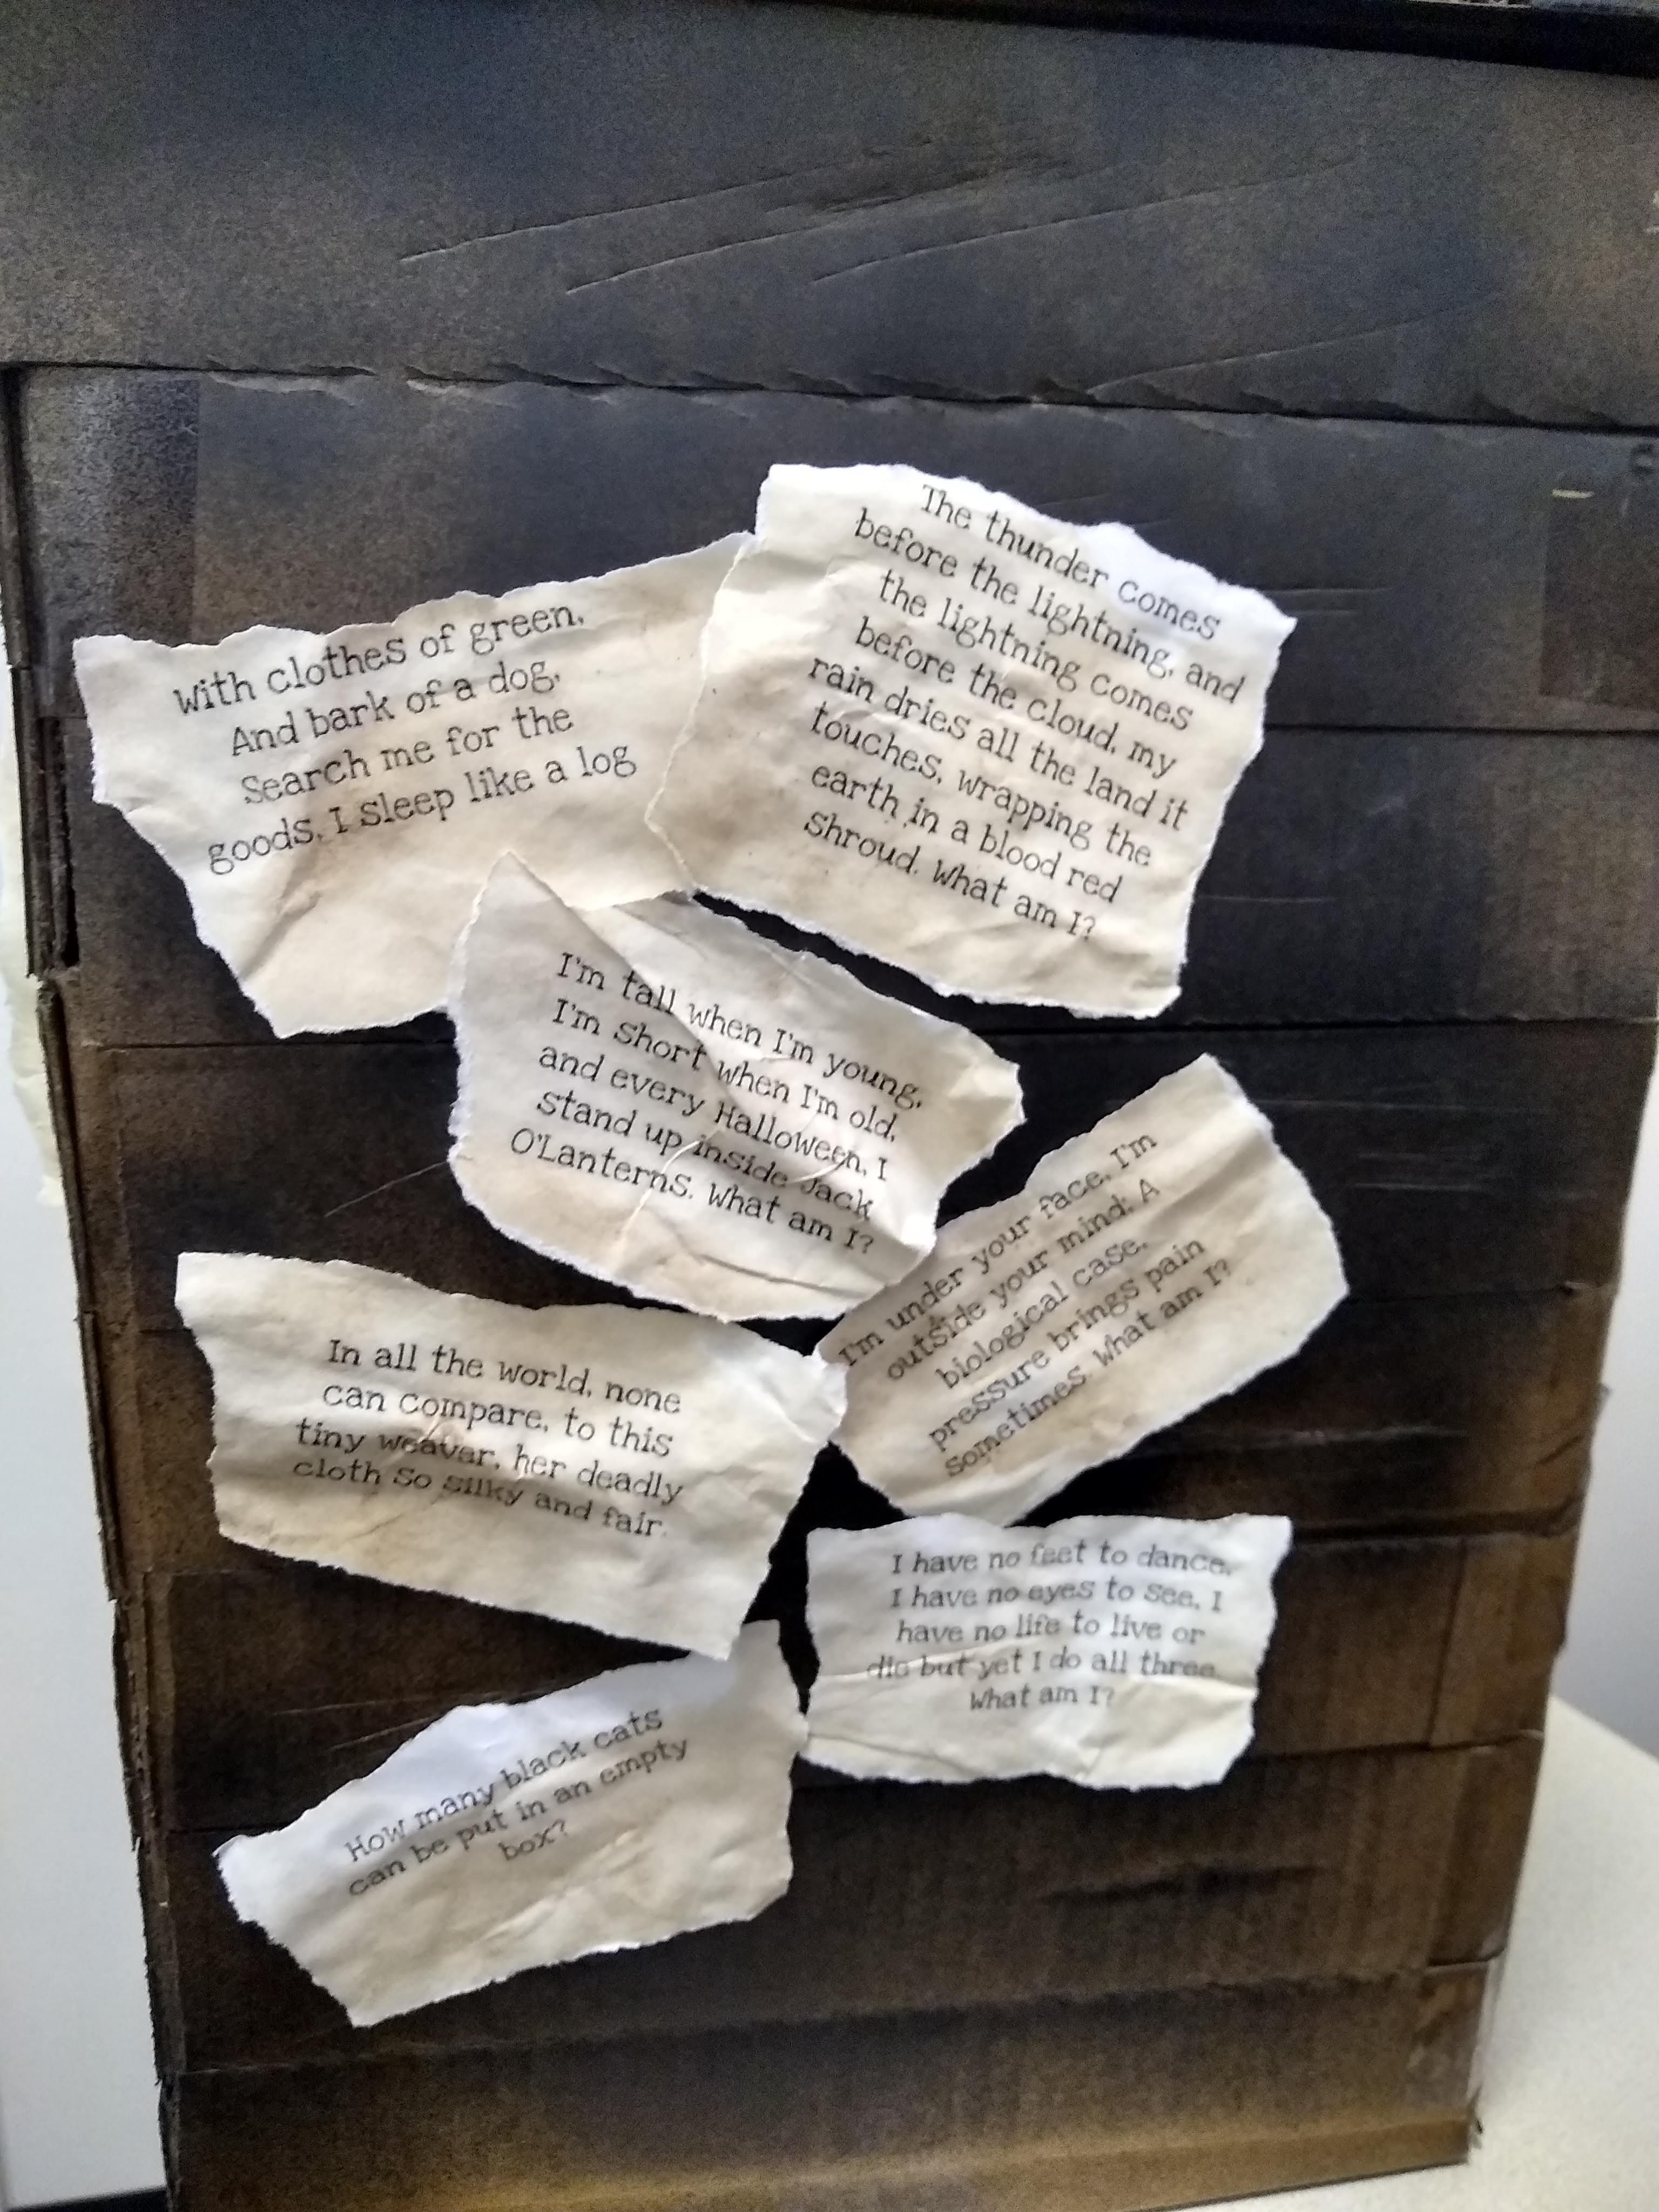 With clothes of green,
And bark of a dog,
Search me for the
goods, I sleep like a log
The thunder comes
before the lightning, and
the lightning comes
before the cloud, my
rain dries all the land it
touches, wrapping the
earth in a blood red
shroud. What am I?
I'm tall when I'm young,
I'm short when I'm old,
and every Halloween, I
stand up inside Jack
O'Lanterns. What am I?
I'm under your face, I'm
outside your mind; A
biological case,
pressure brings pain
sometimes. What am I?
In all the world, none
can compare, to this
tiny weaver, her deadly
cloth so silky and fair.
I have no feet to dance,
I have no eyes to see, I
have no life to live or
die but yet I do all three.
What am I?
How many black cats
can be put in an empty
box?